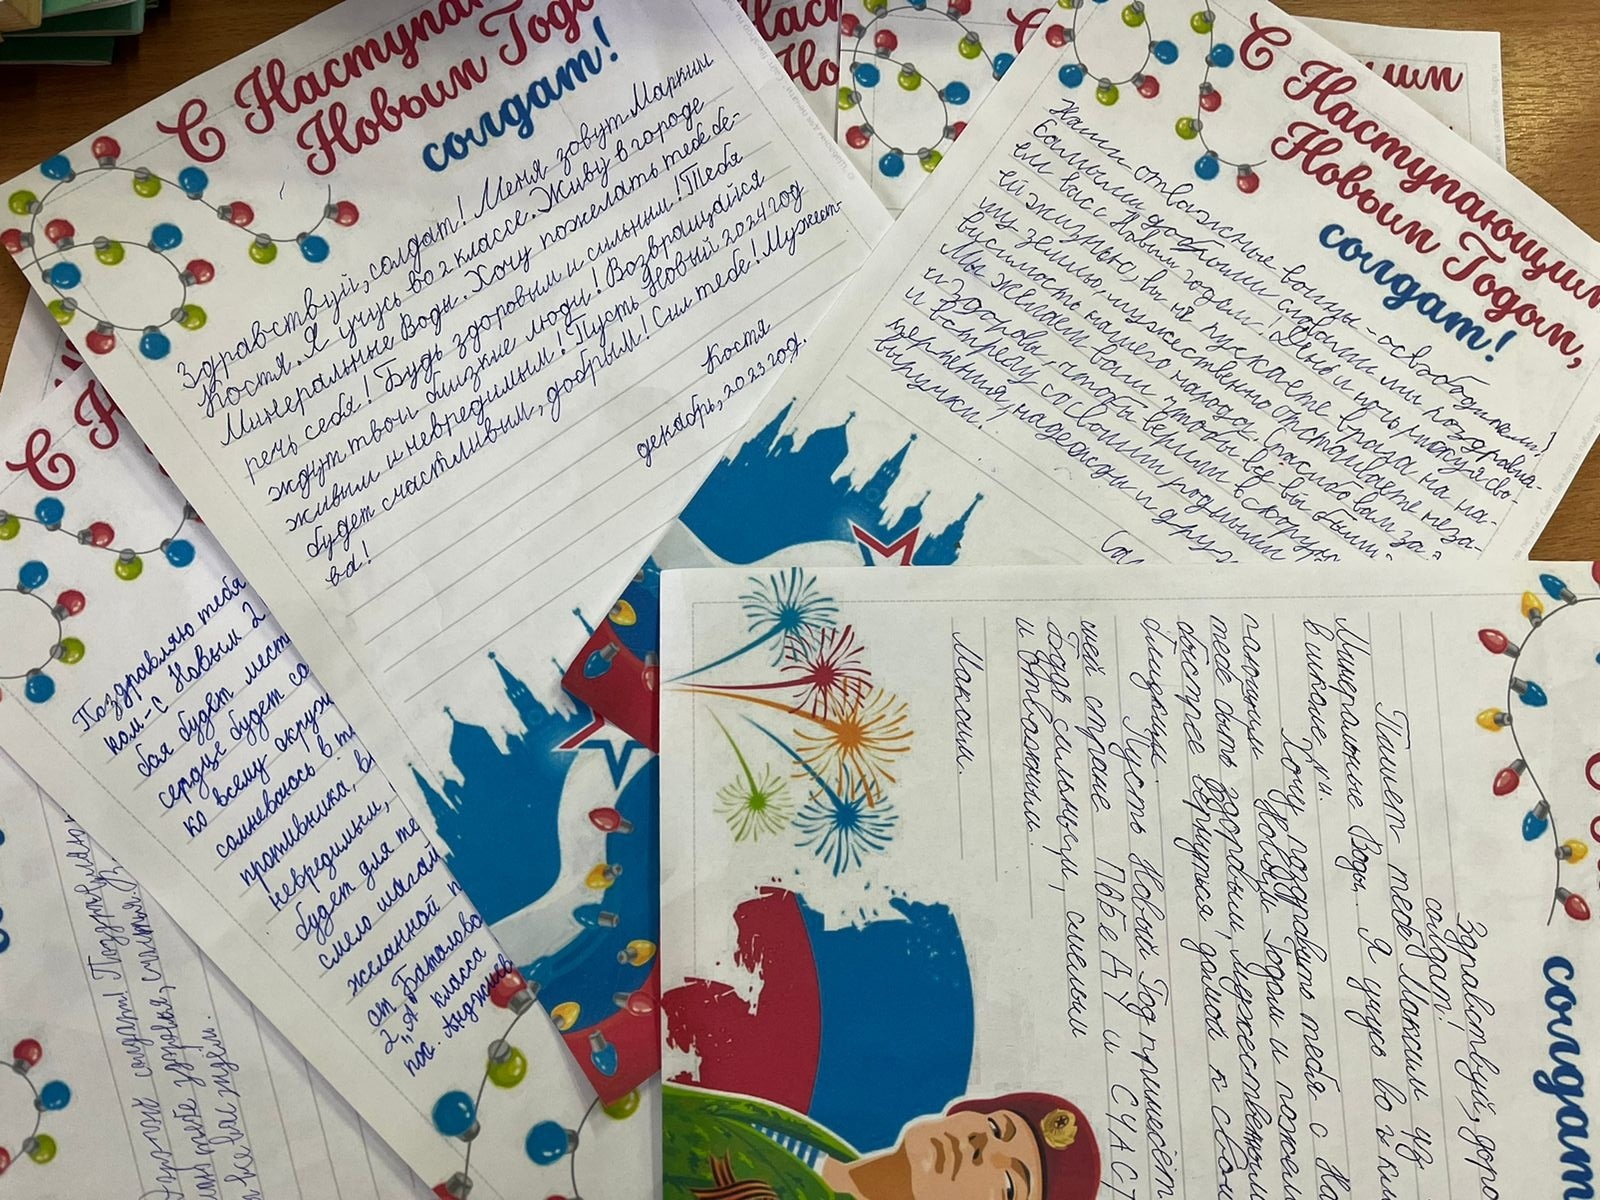 С Наступа
Новым Годо
солдат!
Здравствуй, солдат! Меня зовут Маркин
Костя. Я учусь во 2 классе. Живу в городе
Минеральные Воды. Хочу пожелать тебе бе-
речь себя! Будь здоровым и сильным! Тебя
ждут твои близкие люди! Возвращайся
живым и невредимым! Пусть Новый 2024 год
будет счастливым, добрым! Сил тебе! Мужест-
ва!
Костя
декабрь, 2023 год.
С Наступающим
Новым Годом,
солдат!
Наши отважные воины - освободители!
Самыми добрыми словами мы поздравля-
ем вас с Новым годом! День и ночь, рискуя сво-
ей жизнью, вы не пускаете врага на на-
шу землю, мужественно отстаиваете неза-
висимость нашего народа. Спасибо вам за
Мы желаем вам, чтобы вы были
и здоровы, чтобы верили в скорую
и встречу со своими родными
терпения, надежды и друж
выручки!
С Н
Поздравляю тебя
ком-с Новым 2
боя будет мест
сердце будет со
ко всему окруж
сомневаюсь в т
противника, в
невредимым,
будет для те
смело шагай
желанной п
от Баталова
2 "А" класса
пос. Анджиев
солдат! Поздравляю
тебе здоровья, счастья,
вас ждём.
солдат
Здравствуй, доро
солдат!
Пишет тебе Максим из
Минеральные Воды. Я учусь во 2 кл
в школе №
Хочу поздравить тебя с На
пающим Новым Годом и пожел
тебе быть здоровым, мужественным
быстрее вернуться домой к свои
близким.
Пусть Новый Год принесёт
шей стране ПОБЕДУ и СЧАСТ
Будь сильным, смелым
и отважным.
Максим.